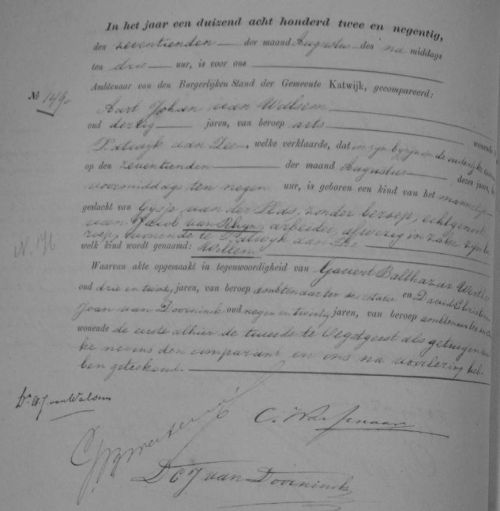 In het jaar een duizend acht honderd twee en negentig,
den zeventienden der maand Augustus des na middags
ten drie uur, is voor ons
Ambtenaar van den Burgerlijken Stand der Gemeente Katwijk, gecompareerd:
No 149.
Aart Johan van Walsem
oud dertig jaren, van beroep arts
Katwyk aan Zee, welke verklaarde, dat in zyn byzyn
op den zeventienden der maand Augustus dezes jaars
voormiddags ten negen uur, is geboren een kind van het mannelijk
geslacht van Gysje van der zonder beroep, echtgenoote
van van Rhyn, arbeider, afwezig in zake zyn be
roep, wonende te Katwyk aan Zee
welk kind wordt genaamd: Willem
Waarvan akte opgemaakt in tegenwoordigheid van Govert Balthazar
oud drie en twintig jaren, van beroep ambtenaar ter secretarie en David Christiaan
Joan van Doorninck oud negen en twintig jaren, van beroep ambtenaar ter
wonende de eerste alhier de tweede te Oegstgeest als getuigen
ke nevens den comparant en ons na voorlezing heb
ben geteekend.
Dr. A J van Walsem
D C J van Doorninck